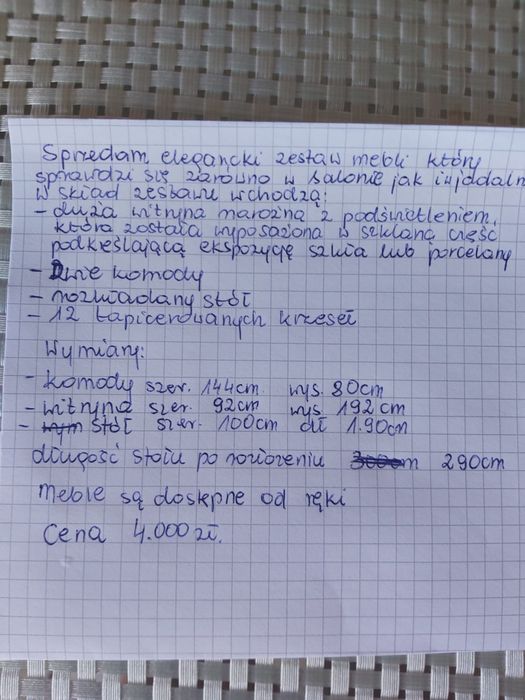 Sprzedam elegancki zestaw mebli który
sprawdzi się zarówno w salonie jak i w jadaln
w skład zestawu wchodzą:
- duża witryna narożna z podświetleniem,
która została wyposażona w szklaną część
podkreślającą ekspozycję szkła lub porcelany
- Dwie komody
- rozkładany stół
- 12 tapicerowanych krzeseł
Wymiary:
- komody szer. 144cm wys. 80cm
- witryna szer. 92cm wys. 192cm
- stół szer. 100cm dł 1.90cm
długość stołu po rozłożeniu 290cm
Meble są dostępne od ręki
Cena 4.000 zł.